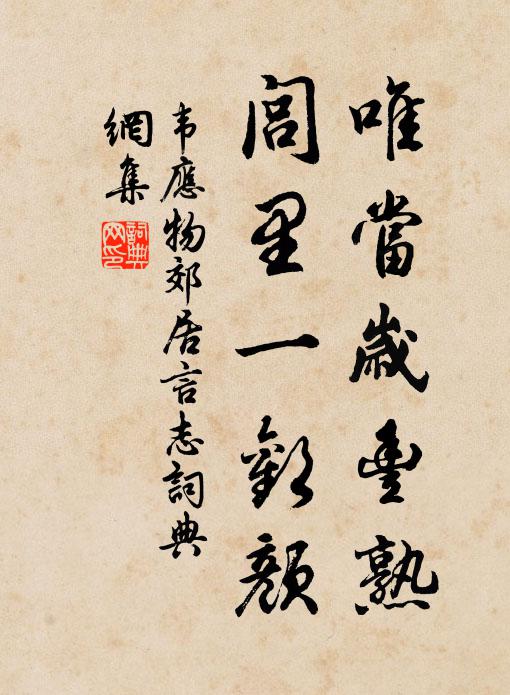 唯當歲豐熟
閭里一歡顏
韦應物郊居言志詞典
網集
詞典
网印